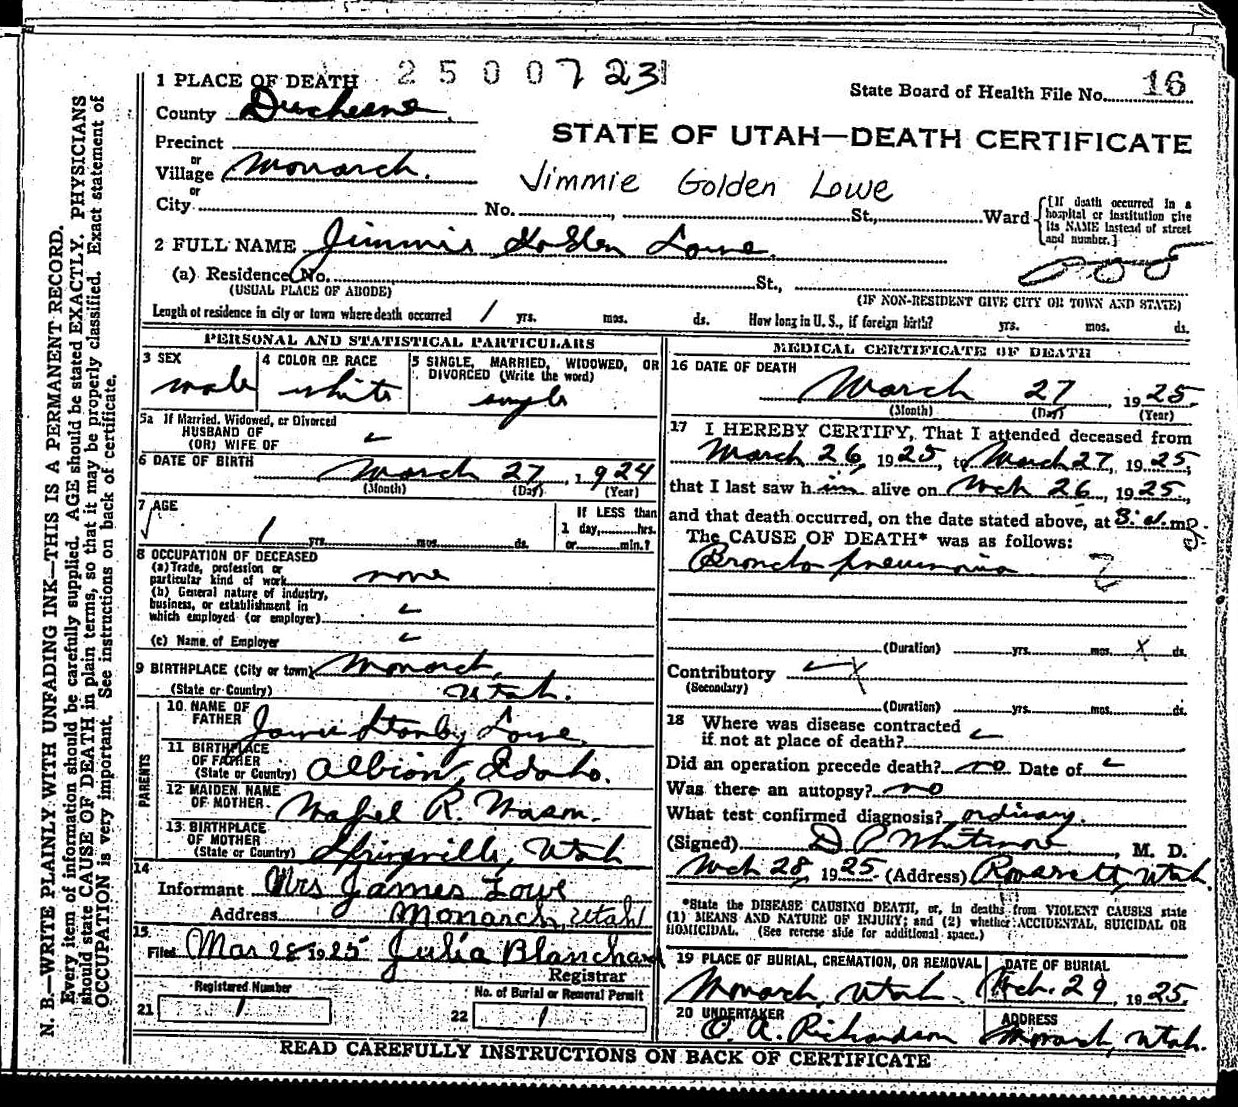 1 PLACE OF DEATH 2500723
State Board of Health File No. 16
County Duchesne
STATE OF UTAH—DEATH CERTIFICATE
Precinct
or
Village Monarch.
Jimmie Golden Lowe
or
City No. , St., Ward
{[If death occurred in a hospital or institution give its NAME instead of street and number.]
2 FULL NAME Jimmie Golden Lowe.
(a) Residence No. St.,
(USUAL PLACE OF ABODE) (IF NON-RESIDENT GIVE CITY OR TOWN AND STATE)
Length of residence in city or town where death occurred 1 yrs. mos. ds. How long in U. S., if foreign birth? yrs. mos. ds.
PERSONAL AND STATISTICAL PARTICULARS
3 SEX male
4 COLOR OR RACE white
5 SINGLE, MARRIED, WIDOWED, OR DIVORCED (Write the word) single
5a If Married, Widowed, or Divorced
HUSBAND OF
(OR) WIFE OF
6 DATE OF BIRTH March 27, 1924
(Month) (Day) (Year)
7 AGE 1 yrs. mos. ds.
If LESS than
1 day, hrs.
or min.?
8 OCCUPATION OF DECEASED
(a) Trade, profession or
particular kind of work none
(b) General nature of industry,
business, or establishment in
which employed (or employer)
(c) Name of Employer
9 BIRTHPLACE (City or town) Monarch,
(State or Country) Utah.
PARENTS
10 NAME OF
FATHER Stanley Lowe,
11 BIRTHPLACE
OF FATHER
(State or Country) Albion, Idaho.
12 MAIDEN NAME
OF MOTHER R. Mason.
13 BIRTHPLACE
OF MOTHER
(State or Country) Springville, Utah
14
Informant Mrs James Lowe
Address Monarch, Utah
15
Filed Mar 28 1925 Julia Blanchard
Registrar
Registered Number
21 1
No. of Burial or Removal Permit
22 1
MEDICAL CERTIFICATE OF DEATH
16 DATE OF DEATH
March 27, 1925.
(Month) (Day) (Year)
17 I HEREBY CERTIFY, That I attended deceased from
March 26, 1925, to March 27, 1925,
that I last saw him alive on Mch 26, 1925,
and that death occurred, on the date stated above, at m.
The CAUSE OF DEATH* was as follows:
Broncho pneumonia
(Duration) yrs. mos. x ds.
Contributory x
(Secondary)
(Duration) yrs. mos. ds.
18 Where was disease contracted
if not at place of death?
Did an operation precede death? no Date of
Was there an autopsy? no
What test confirmed diagnosis? ordinary.
(Signed) D P Whitmore, M. D.
Mch 28, 1925 (Address) Roosevelt, Utah.
*State the DISEASE CAUSING DEATH, or, in deaths from VIOLENT CAUSES state
(1) MEANS AND NATURE OF INJURY; and (2) whether ACCIDENTAL, SUICIDAL OR
HOMICIDAL. (See reverse side for additional space.)
19 PLACE OF BURIAL, CREMATION, OR REMOVAL
Monarch, Utah.
DATE OF BURIAL
Mch. 29 1925.
20 UNDERTAKER
O. A. Richardson
ADDRESS
Monarch, Utah.
READ CAREFULLY INSTRUCTIONS ON BACK OF CERTIFICATE
N. B.—WRITE PLAINLY WITH UNFADING INK—THIS IS A PERMANENT RECORD.
Every item of information should be carefully supplied. AGE should be stated EXACTLY. PHYSICIANS
should state CAUSE OF DEATH in plain terms, so that it may be properly classified. Exact statement of
OCCUPATION is very important. See instructions on back of certificate.